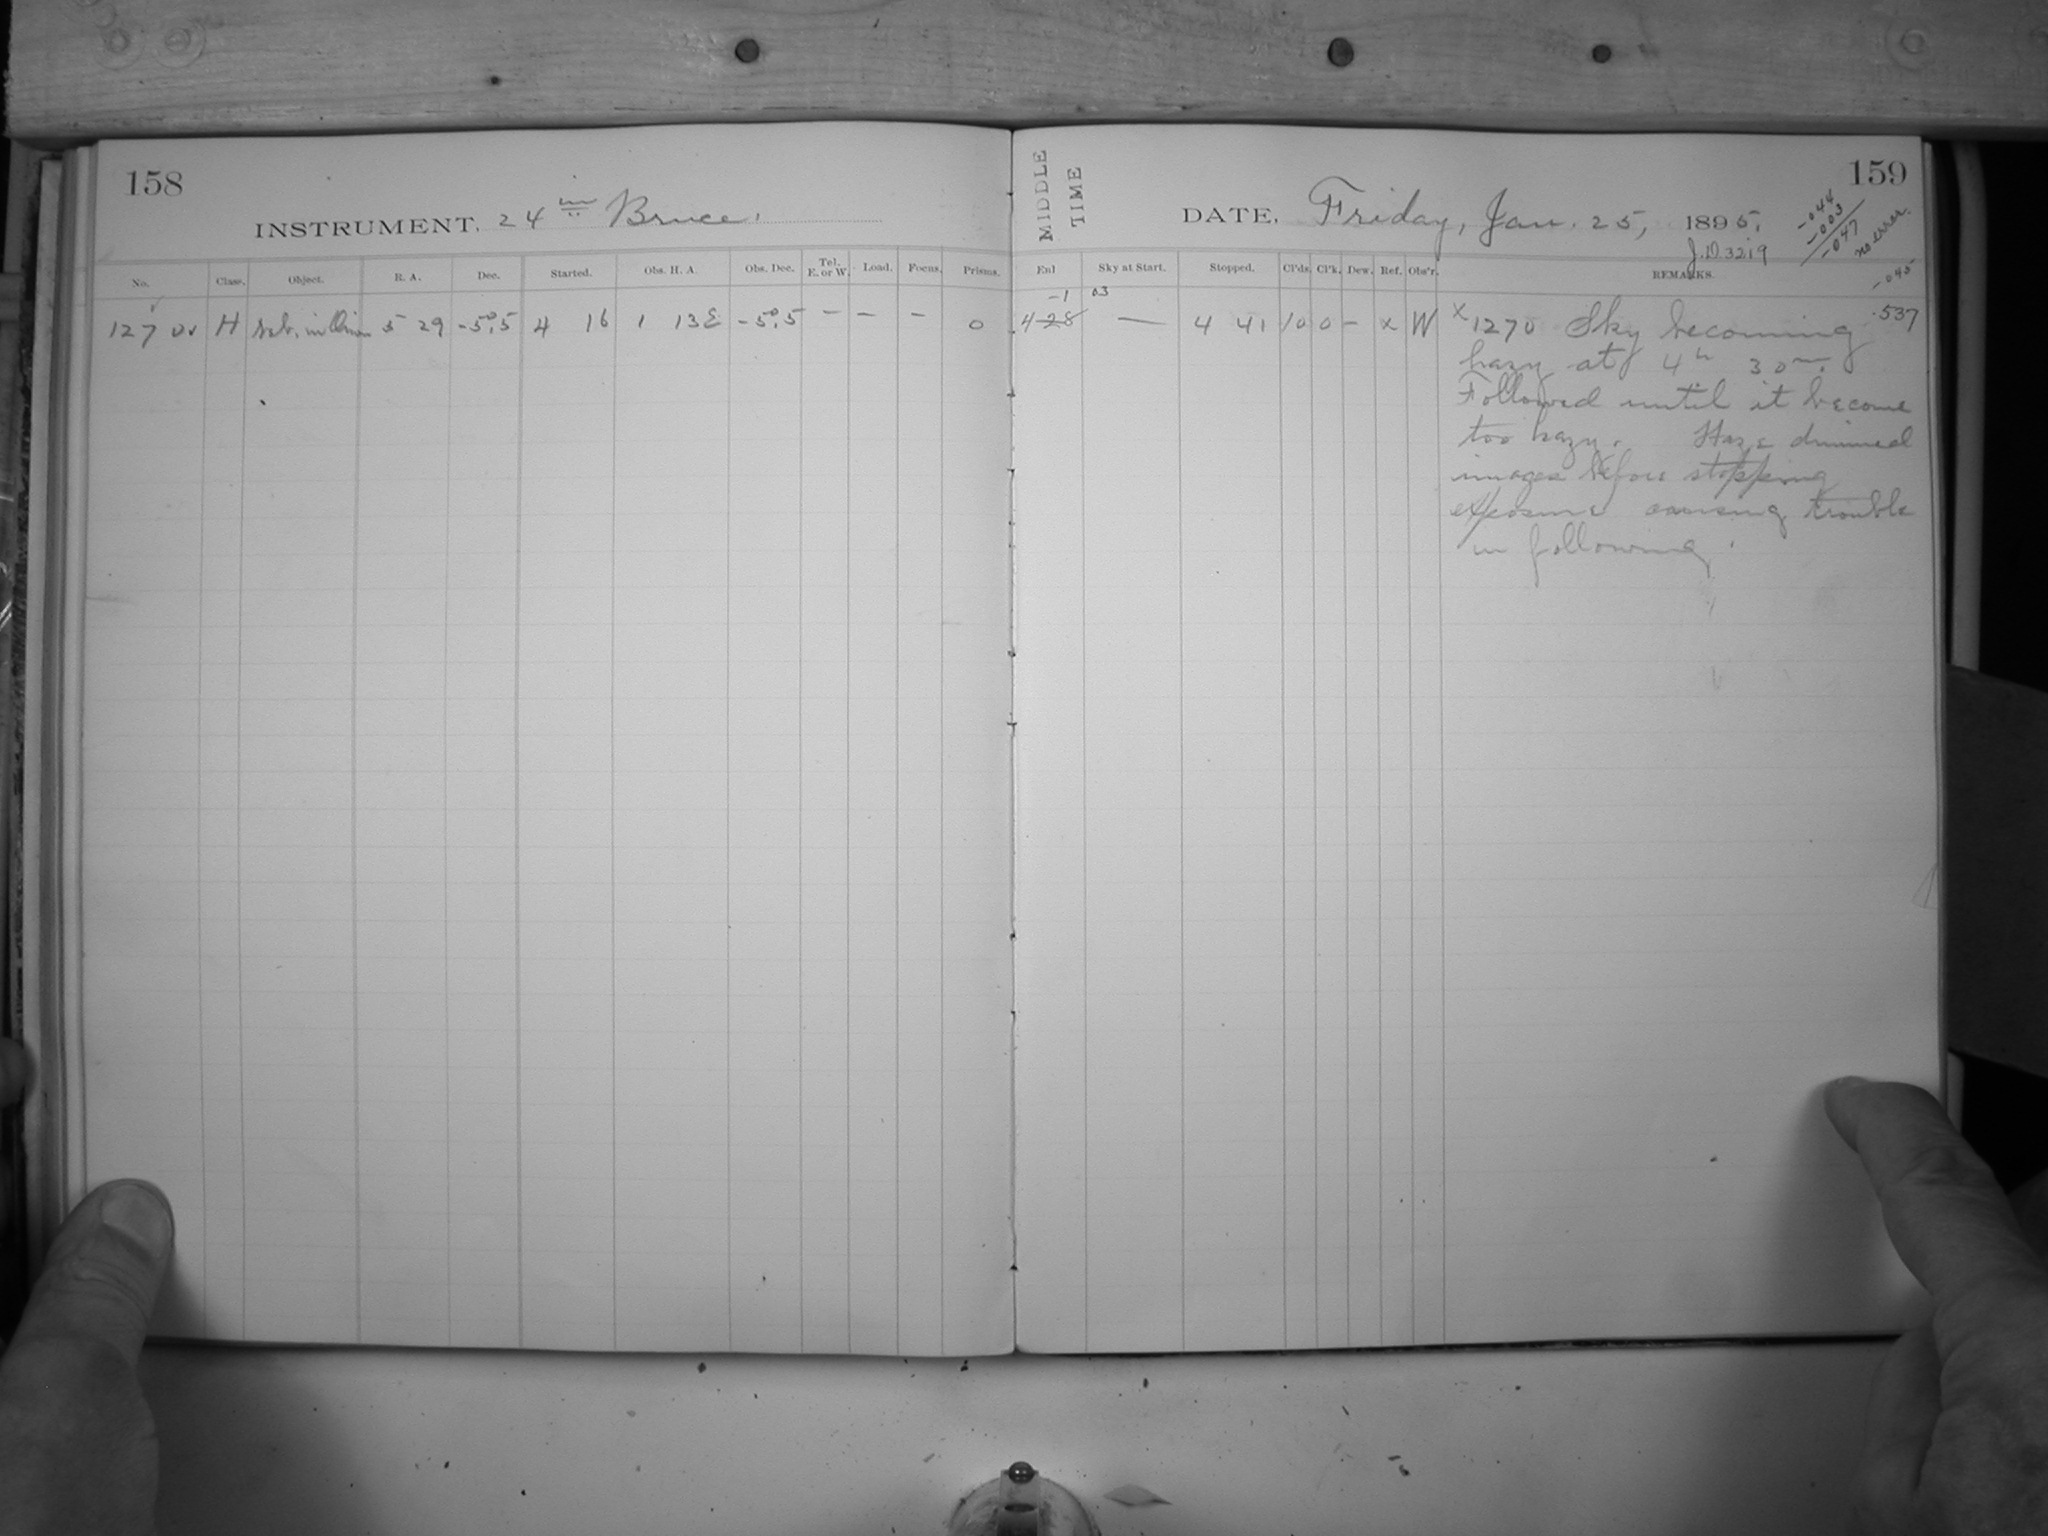 158
INSTRUMENT. 24 in Bruce.
No. Class. Object. R. A. Dec. Started. Obs. H. A. Obs. Dec. Tel. E. or W. Load. Focus. Prisms.
127 H Neb. in Orion 5 29 -5°.5 4 16 1 13 E -5°.5 - - - 0
MIDDLE TIME
DATE. Friday, Jan. 25, 1895.
159
J.D. 3219
-.044
-.003
-.047
no error.
Exl Sky at Start. Stopped. Cl'ds. Cl'k. Dew. Ref. Obs'r. REMARKS.
-.045
-1 03
4 28 — 4 41 10 0 - x W x 1270 Sky becoming .537
hazy at 4h 30m.
Followed until it become
too hazy. Haze dimmed
images before stopping
exposure causing trouble
in following.